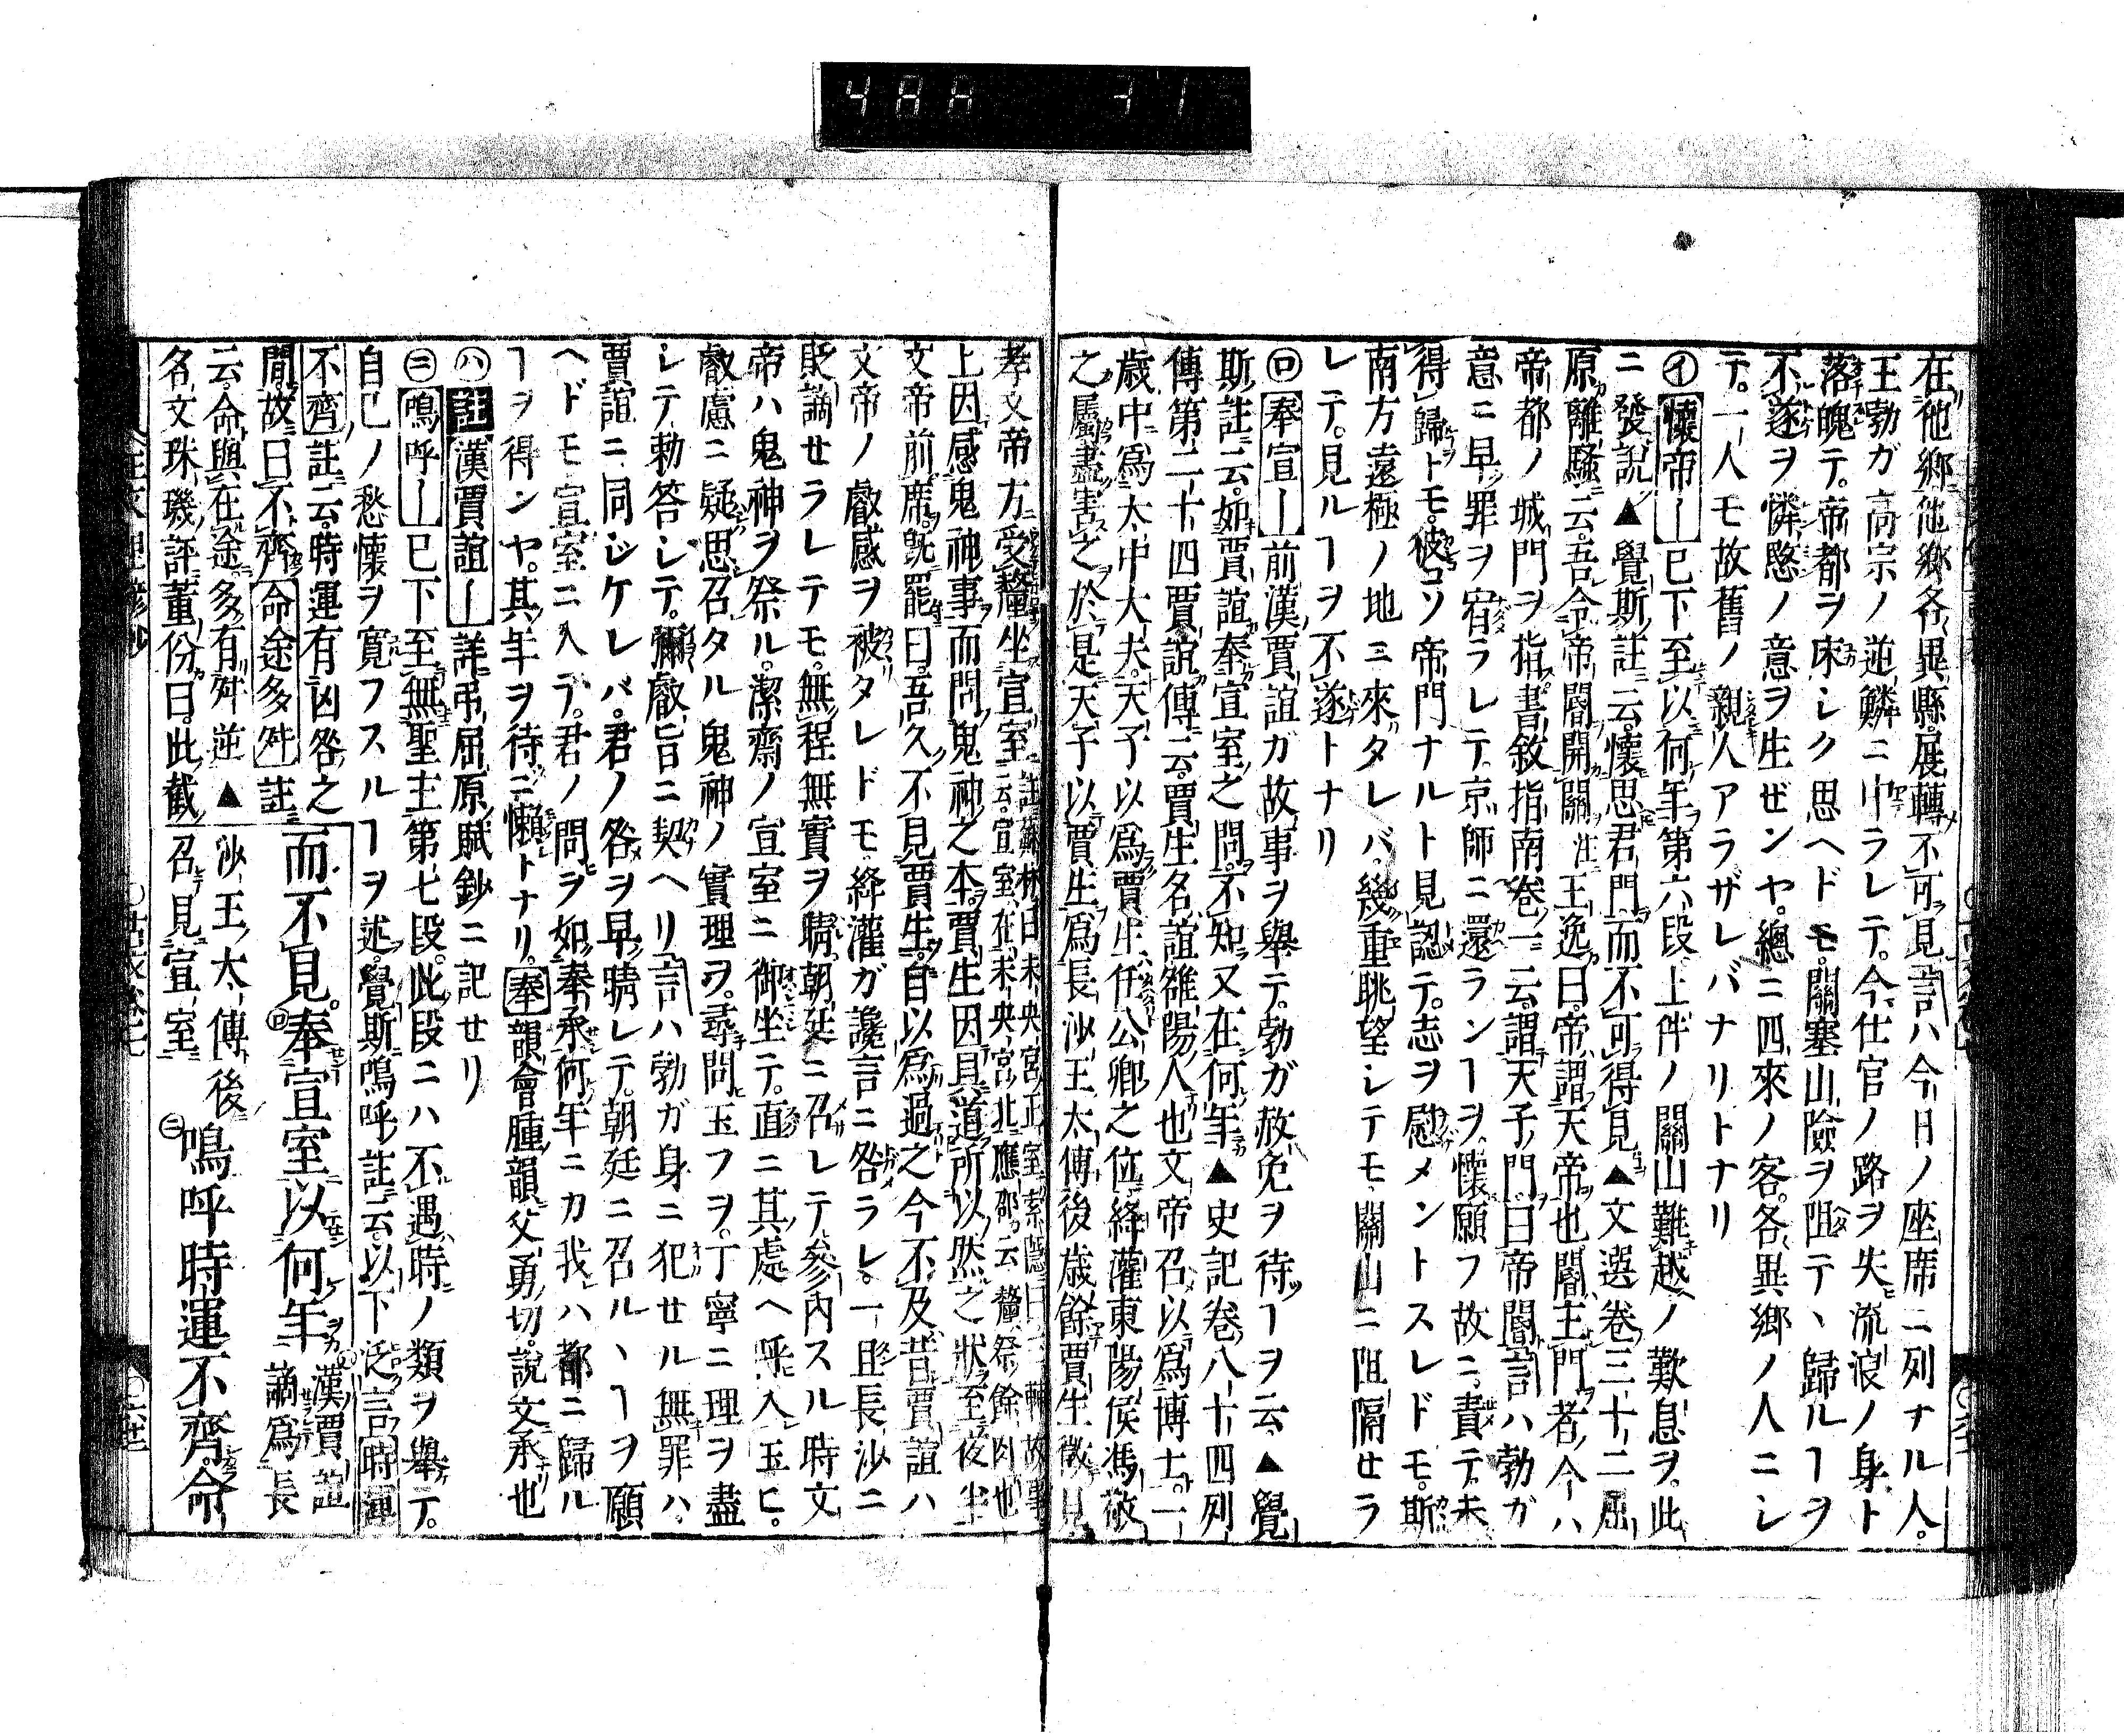 在他郷他郷各異縣展轉不可見言ハ今日ノ座席ニ列ナル人。
王勃ガ高宗ノ逆鱗ニ中ラレテ。今仕官ノ路ヲ失流浪ノ身ト
落魄テ。帝都ヲ床シク思ヘドモ。關塞山險ヲ阻テヽ歸ルヿヲ
不遂ヲ憐愍ノ意ヲ生ゼンヤ。總ニ四來ノ客。各異郷ノ人ニシ
テ。一人モ故舊ノ親人アラザレバナリトナリ
㋑懷帝ー已下至以何年第六段上件ノ關山難越ノ歎息ヲ。此
ニ發說▲覺斯註云。懷思君門而不可得見▲文選卷三十二屈
原離騷云。吾令帝閽開關注王逸曰。帝謂天帝也閽主門者今ハ
帝都ノ城門ヲ指書敘指南卷一云謂天子門曰帝閽言ハ勃ガ
意ニ早罪ヲ宥ラレテ。京師ニ還ランヿヲ懷願フ故ニ。責テ未
得歸トモ。彼コソ帝門ナルト見認テ。志ヲ慰メントスレドモ。斯
南方遠極ノ地ニ來タレバ。幾重眺望シテモ關山ニ阻隔セラ
レテ。見ルヿヲ不遂トナリ
㋺奉宣ー前漢賈誼ガ故事ヲ舉テ。勃ガ赦免ヲ待ヿヲ云▲覺
斯註云。如賈誼奉宣室之問。不知又在何年▲史記卷八十四列
傳第二十四賈誼傳云。賈生名誼雒陽人也文帝召以爲博士。一
歳中爲太中大夫。天子以爲賈生任公卿之位絳灌東陽侯馮敬
之屬盡害之於是天子以賈生爲長沙王太傅後歳餘賈生徵見
孝文帝方受釐坐宣室
上因感鬼神事而問鬼神之本。賈生因具道所以然之狀至夜半
文帝前席。既罷曰。吾久不見賈生。自以爲過之今不及昔賈誼ハ
文帝ノ叡感ヲ被タレドモ絳灌ガ讒言ニ咎ラレ。一旦長沙ニ
貶謫セラレテモ。無程無實ヲ晴朝廷ニ召レテ參内スル時文
帝ハ鬼神ヲ祭ル。潔齋ノ宣室ニ御坐テ。直ニ其處ヘ呼入玉ヒ。
叡慮ニ疑思召タル鬼神ノ實理ヲ。尋問玉フヲ。丁寧ニ理ヲ盡
シテ勅答シテ。彌叡旨ニ契ヘリ言ハ勃ガ身ニ犯セル無罪ハ
賈誼ニ同ジケレバ。君ノ咎ヲ早晴レテ。朝廷ニ召ルヽヿヲ願
ヘドモ宣室ニ入テ。君ノ問ヲ如奉承何年ニカ我ハ都ニ歸ル
ヿヲ得ンヤ。其年ヲ待ニ懶トナリ。奉韻會腫韻父勇切。說文承也
㋩註漢賈誼ー詳弔屈原賦鈔ニ記セリ
㊁鳴呼ー已下至無聖主第七段。此段ニハ不遇時ノ類ヲ舉テ。
自己ノ愁懷ヲ寬フスルヿヲ述。覺斯鳴呼註云。以下泛言時運
不齊註云。時運有凶咎之
間。故曰不齊命途多舛註
云。命與在途多有舛逆▲
名文珠璣評董份曰。此截
而不見。㋺奉宣室以何年㋩漢賈誼
謫爲長
沙王太傅後
召見宣室
㊁鳴呼時運不齊。命